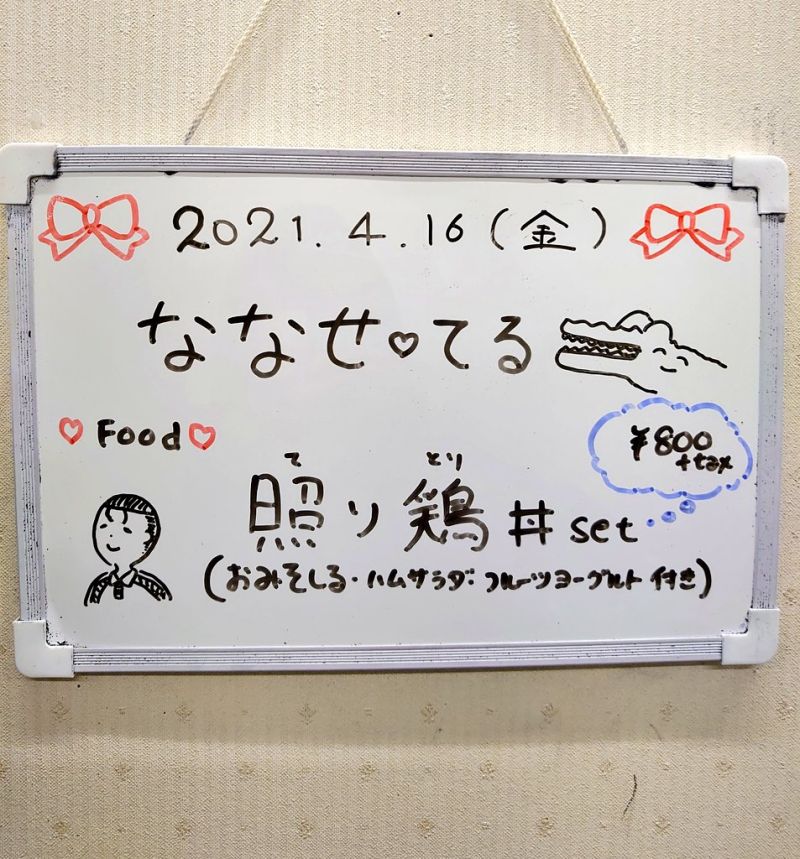 2021.4.16(金)
ななせ♡てる
♡Food♡
¥800
+tax
て とり
照り鶏丼set
(おみそしる・ハムサラダ・フルーツヨーグルト付き)